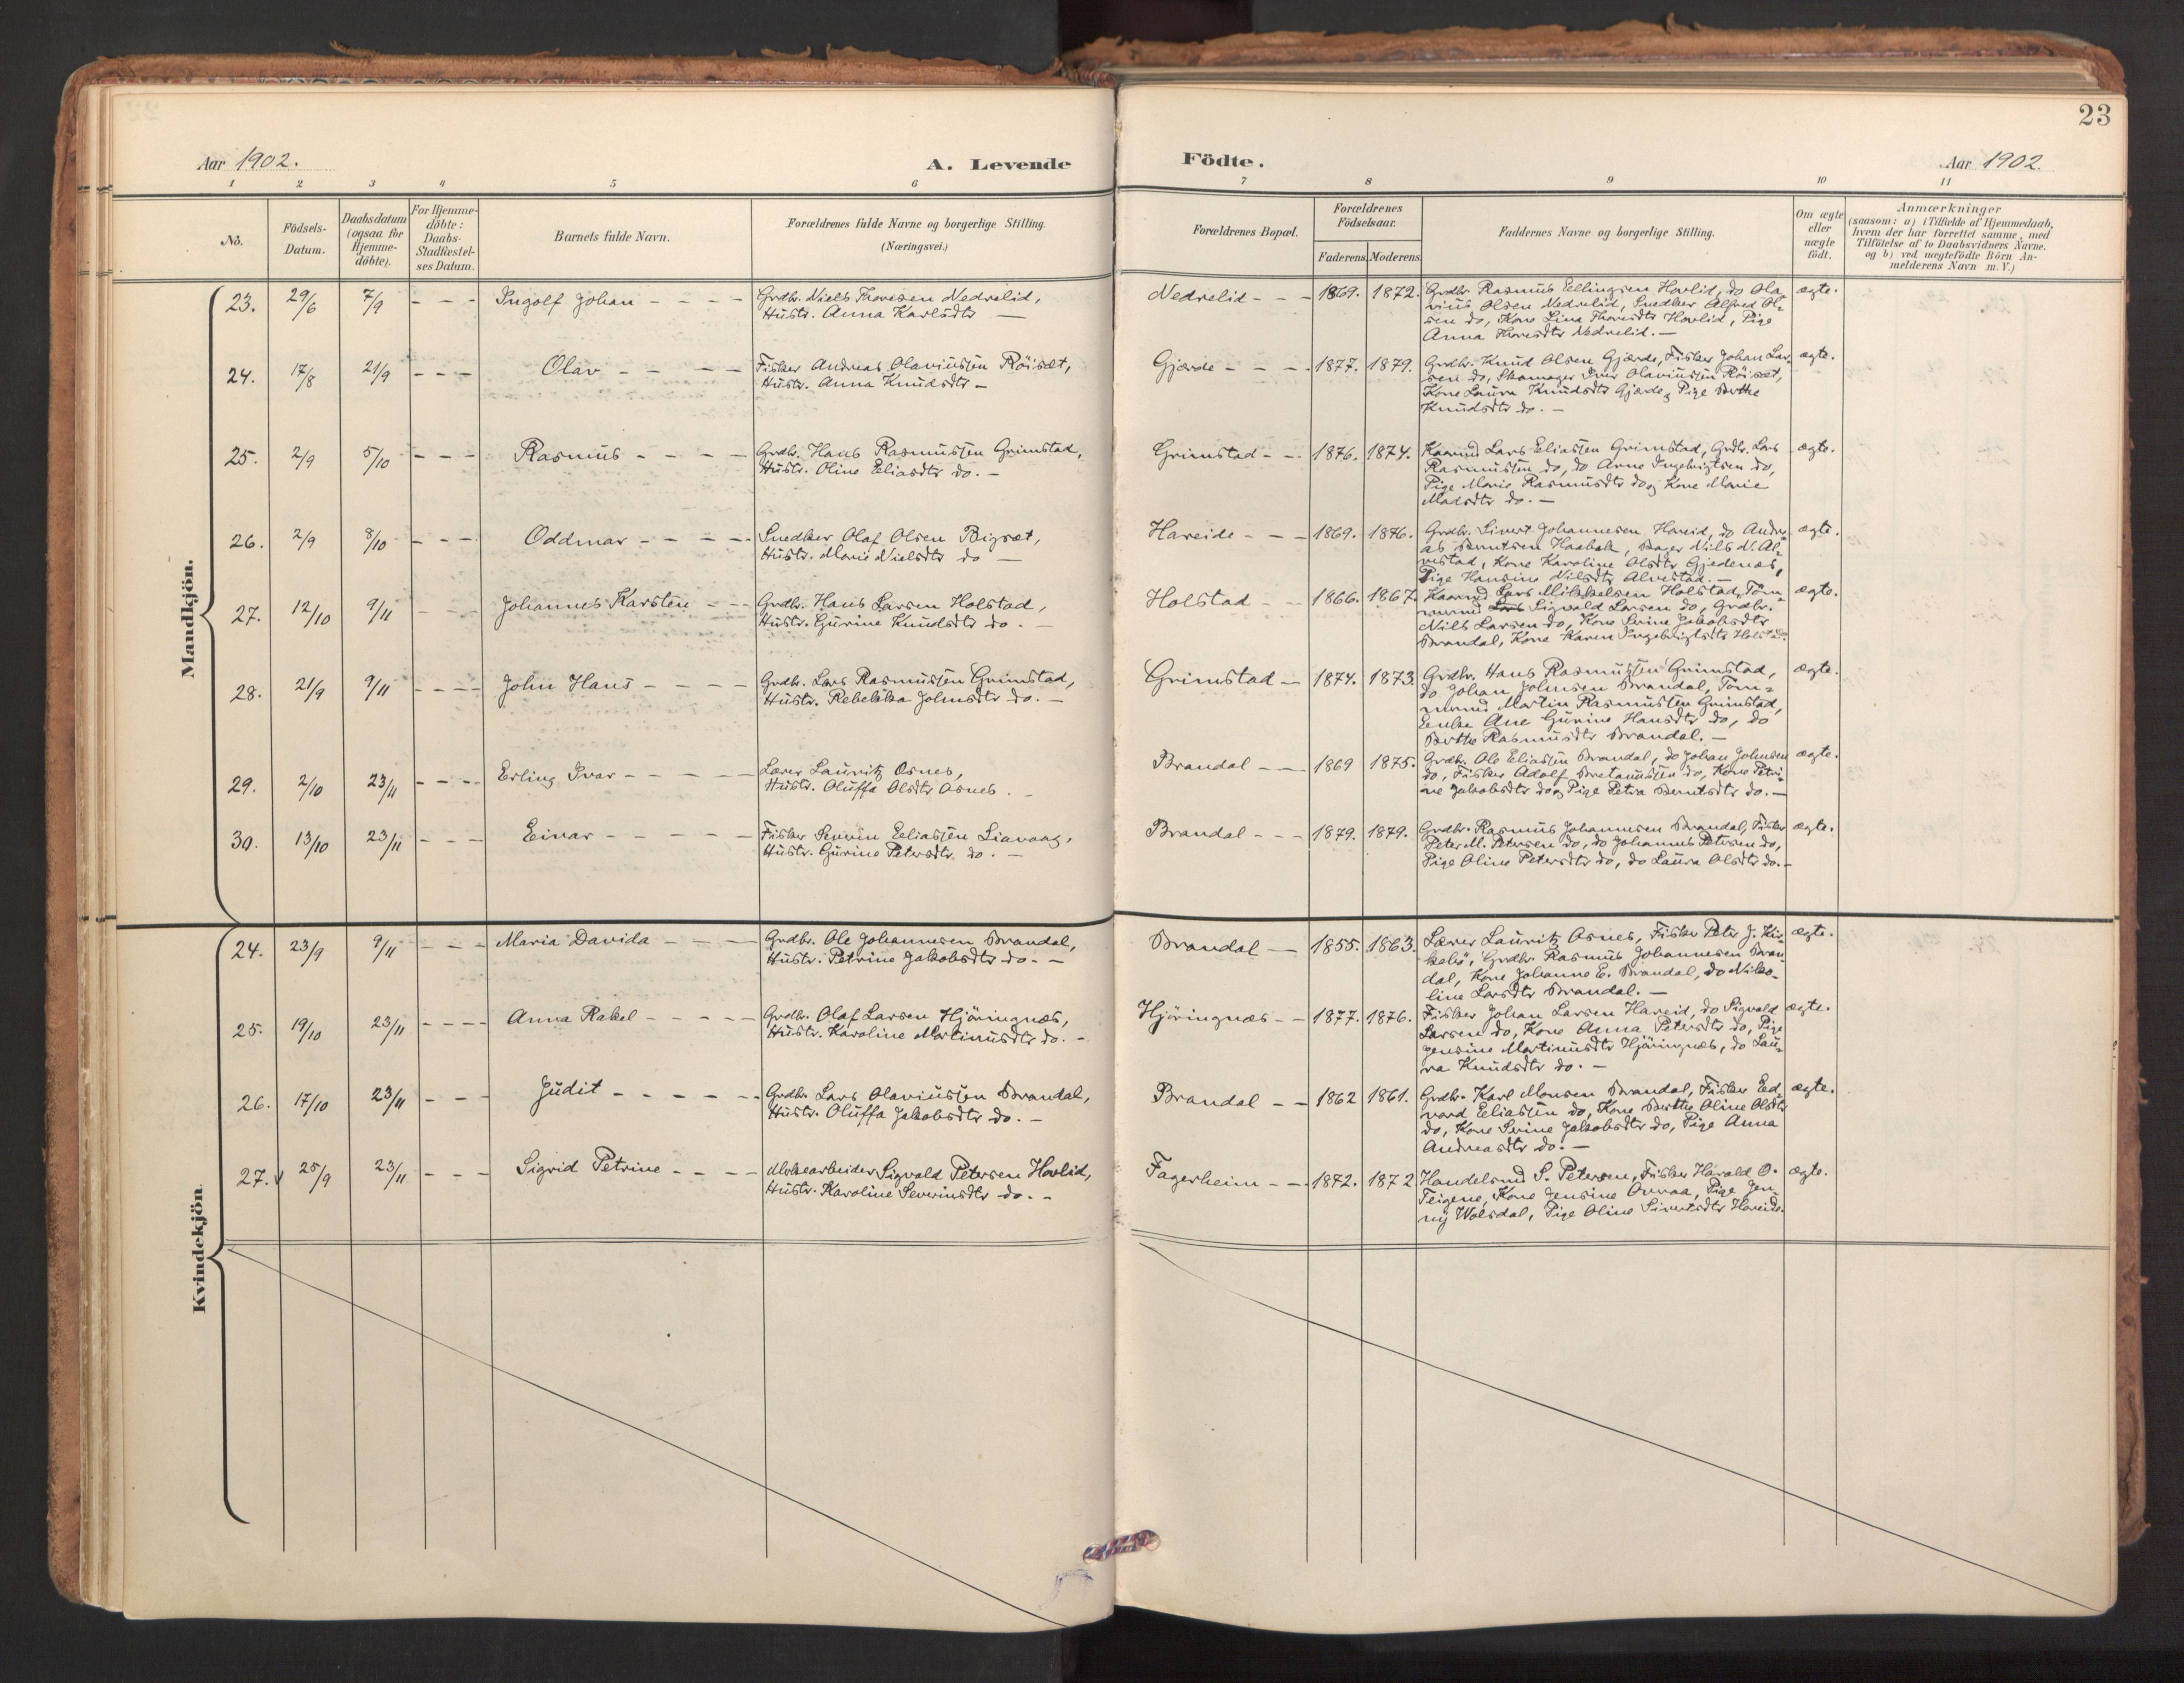 23
Aar 1902.
A. Levende
Födte.
Aar 1902.
1 2 3 4 5 6 7 8 9 10 11
No.
Födsels-
Datum.
Daabsdatum
(ogsaa for
Hjemme-
döbte).
For Hjemme-
döbte:
Daabs-
Stadfæstel-
ses Datum.
Barnets fulde Navn.
Forældrenes fulde Navne og borgerlige Stilling.
(Næringsvei.)
Forældrenes Bopæl.
Forældrenes
Födselsaar.
Faderens.
Moderens.
Faddernes Navne og borgerlige Stilling.
Om ægte
eller
uægte
födt.
Anmærkninger
(saasom: a) i Tilfælde af Hjemmedaab,
hvem der har forrettet samme, med
Tilföielse af to Daabsvidners Navne,
og b) ved uægtefödte Börn An-
melderens Navn m. V.)
Mandkjön.
23. 29/6 7/9 - - - Ingolf Johan - - - -
Grdbr. Niels Thoresen Nedrelid,
Hustr. Anna Karlsdtr —
Nedrelid - - - 1869. 1872.
Grdbr. Rasmus Ellingsen Hovlid, do Ola-
vius Olsen Nedrelid, Snedker Alfred Ol-
sen do, Kone Lina Thoresdtr Hovlid, Pige
Anna Thoresdtr Nedrelid. —
ægte.
24. 17/8 21/9 - - - Olav - - - -
Fisker Andreas Olaviussen Röiset,
Hustr. Anna Knudsdtr —
Gjærde - - - - 1877. 1879.
Grdbr. Knud Olsen Gjærde, Fisker Johan Lar-
sen do, Skomager Iver Olaviussen Röiset,
Kone Laura Knudsdtr Gjærde, Pige Berthe
Knudsdtr do. —
ægte.
25. 2/9 5/10 - - - Rasmus - - - -
Grdbr. Hans Rasmussen Grimstad,
Hustr. Oline Eliasdtr do. —
Grimstad - - - 1876. 1874.
Kaarmd Lars Eliassen Grimstad, Grdbr. Lars
Rasmussen do, do Arne Ingebrigtsen do,
Pige Marie Rasmusdtr do og Kone Marie
Madsdtr do. —
ægte.
26. 2/9 8/10 - - - Oddmar - - - - -
Snedker Olaf Olsen Bigset,
Hustr. Marie Nielsdtr do —
Hareide - - - 1869. 1876.
Grdbr. Sivert Johannesen Hareid, do Andre-
as Berntsen Haabak, Bager Nils N. Al-
vestad, Kone Karoline Olsdtr Gjedenes,
Pige Hansine Nilsdtr Alvestad. —
ægte.
27. 12/10 9/11 - - - Johannes Karsten - - -
Grdbr. Hans Larsen Holstad,
Hustr. Gurine Knudsdtr do. —
Holstad - - 1866. 1867.
Kaarmd Lars Mikkelsen Holstad, Töm-
mermd Lars Sigvald Larsen do, Grdbr.
Nils Larsen do, Kone Serine Jakobsdtr
Brandal, Kone Karen Ingebrigtsdtr Holstad.
ægte.
28. 21/9 9/11 - - - - John Hans - - - -
Grdbr. Lars Rasmussen Grimstad,
Hustr. Rebekka Johnsdtr do. —
Grimstad — 1874. 1873.
Grdbr. Hans Rasmussen Grimstad,
do Johan Johnsen Brandal, Töm-
mermd Martin Rasmussen Grimstad,
Enke Ane Gurine Hansdtr do, do
Berthe Rasmusdtr Brandal. —
ægte.
29. 2/10 23/11 - - - - Erling Ivar - - - - -
Lærer Lauritz Osnes,
Hustr. Oluffa Olsdtr Osnes.
Brandal - - - 1869 1875.
Grdbr. Ole Eliassen Brandal, do Johan Johnsen
do, Fisker Adolf Bretanussen do, Kone Petri-
ne Jakobsdtr do og Pige Petra Berntsdtr do. —
ægte.
30. 13/10 23/11 - - - Einar - - - - -
Fisker Severin Eliassen Liavaag,
Hustr. Gurine Petersdtr do. —
Brandal - - - 1879. 1879.
Grdbr. Rasmus Johannesen Brandal, Fisker
Peter M. Petersen do, do Johannes Petersen do,
Pige Oline Petersdtr do, do Laura Olsdtr do. —
ægte.
Kvindekjön.
24. 23/9 9/11 - - - Maria Davida - - - -
Grdbr. Ole Johannesen Brandal,
Hustr. Petrine Jakobsdtr do. —
Brandal - - 1855. 1863.
Lærer Lauritz Osnes, Fisker Peter J. Kir-
kebö, Grdbr. Rasmus Johannesen Bran-
dal, Kone Johanne E. Brandal, do Niko-
line Larsdtr Brandal. —
ægte.
25. 19/10 23/11 - - - - Anna Rakel - - - - -
Grdbr. Olaf Larsen Hjöringnæs,
Hustr. Karoline Martinusdtr do. -
Hjöringnæs - - 1877. 1876.
Fisker Johan Larsen Hareid, do Sigvald
Larsen do, Kone Anna Petersdtr do, Pige
Jensine Martinusdtr Hjöringnæs, do Lau-
ra Knudsdtr do. —
ægte.
26. 17/10 23/11 - - - Judit - - - - -
Grdbr. Lars Olaviussen Brandal,
Hustr. Oluffa Jakobsdtr do. —
Brandal - - 1862 1861.
Grdbr. Karl Monsen Brandal, Fisker Ed-
vard Eliassen do, Kone Berthe Oline Olsdtr
do, Kone Serine Jakobsdtr do, Pige Anna
Andreasdtr do. —
ægte.
27. 25/9 23/11 - - - Sigrid Petrine - - - -
Sigvald Petersen Hovlid,
Hustr. Karoline Severinsdtr do. -
Fagerheim - - 1872. 1872
Handelsmd S. Petersen, Fisker Harald O.
Teigene, Kone Jensine Overaa, Pige Jen-
ny Wolsdal, Pige Oline Sivertsdtr Hareide.
ægte.